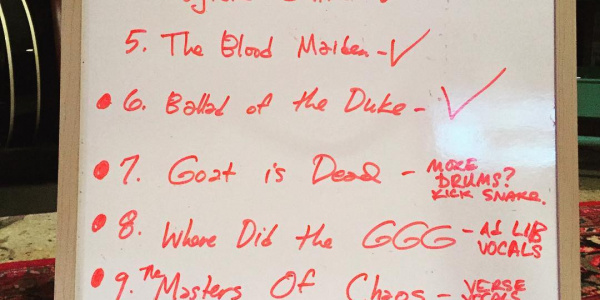 5. The Blood Maiden - ✓
• 6. Ballad of the Duke - ✓
• 7. Goat is Dead - MORE
DRUMS?
KICK SNARE.
• 8. Where Did the GGG - AD LIB
VOCALS
• 9. The Masters Of Chaos - VERSE